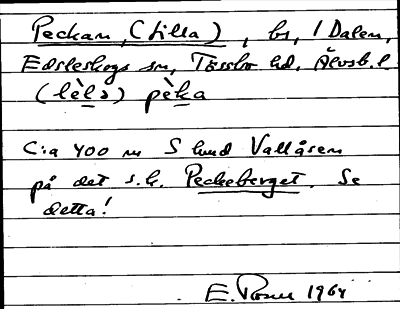 Peckan, (Lilla), bs, / Dalen,
Edsleskogs sn, Tössbo hd, Älvsb. l
(lèls) pèka
C:a 400 m S lund Vallåsen
på det s.k. Peckeberget. Se
detta!
E. 1964